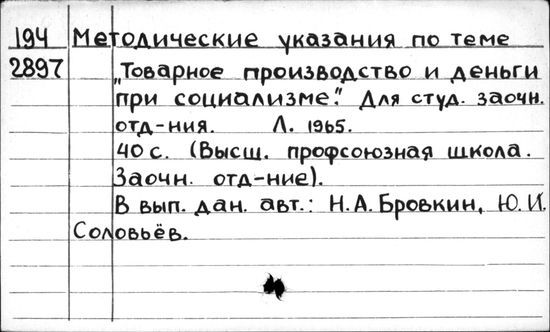 194 Методические указания по теме
2897 „Товарное производство и деньги
при социализме." Для студ. заочн.
отд-ния. Л. 1965.
40 с. (Высш. профсоюзная школа.
Заочн. отд-ние).
В вып. дан. авт.: Н.А.Бровкин, Ю.И.
Соловьёв.